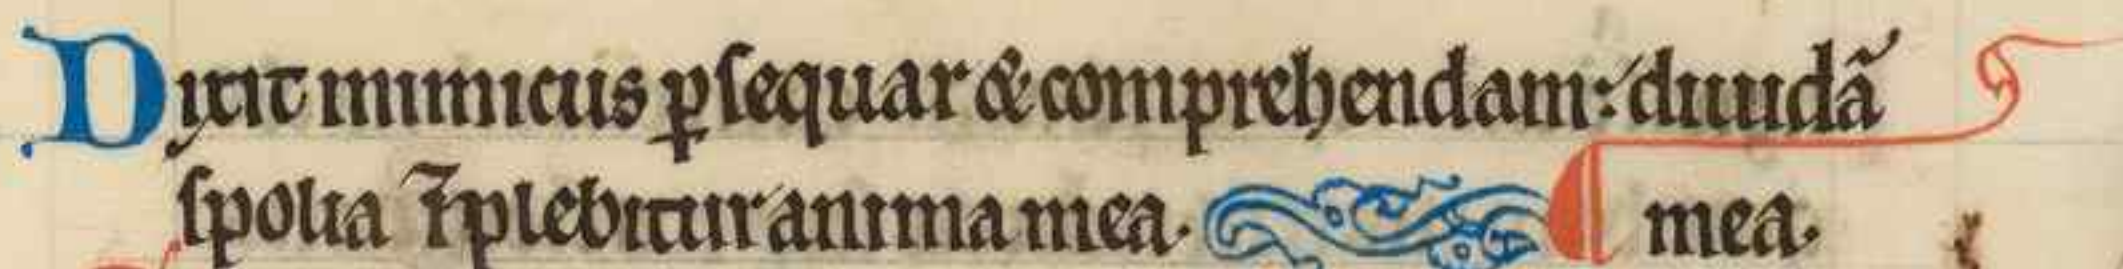 Dixit inimicus ꝑsequar & comprehendam: diuidā
spolia ⁊̄plebitur anima mea. mea.